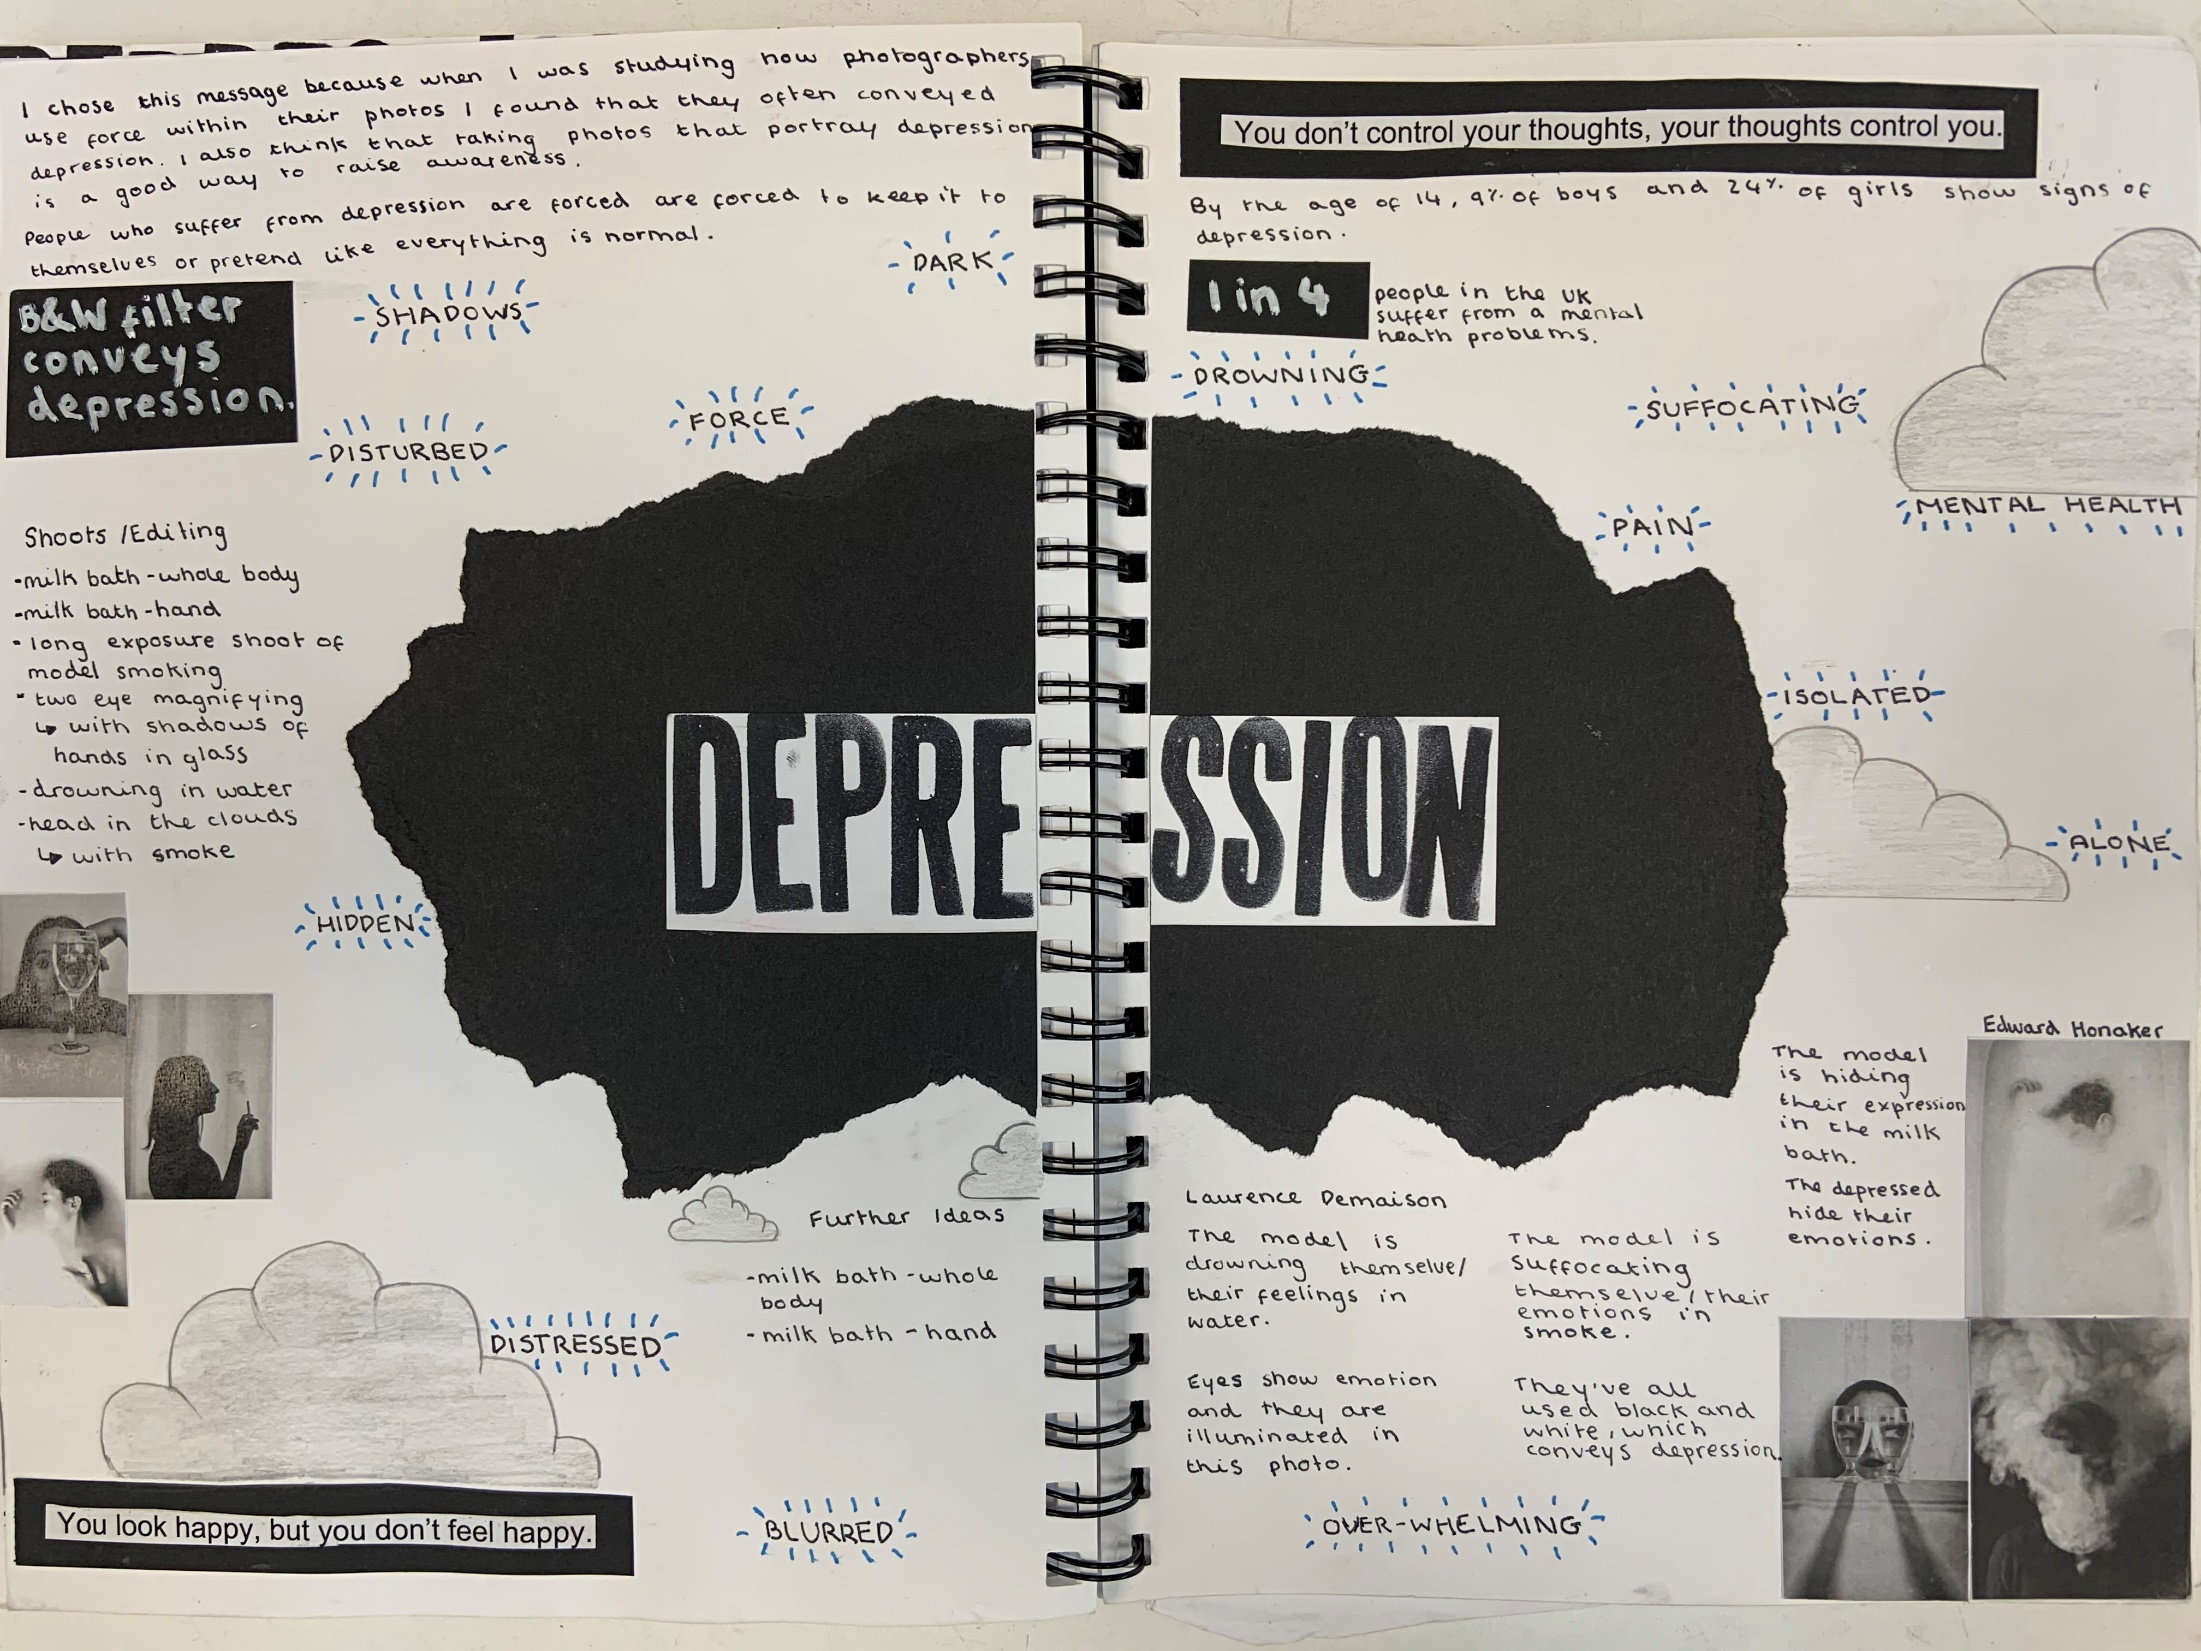 I chose this message because when I was studying how photographers
use force within their photos I found that they often conveyed
depression. I also think that taking photos that portray depression
is a good way to raise awareness.
People who suffer from depression are forced are forced to keep it to
themselves or pretend like everything is normal.
DARK
B&W filter
conveys
depression.
SHADOWS
FORCE
DISTURBED
Shoots /Editing
-milk bath-whole body
-milk bath-hand
- long exposure shoot of
model smoking
- two eye magnifying
↳ with shadows of
hands in glass
-drowning in water
-head in the clouds
↳ with smoke
HIDDEN
DEPRESSION
Further Ideas
-milk bath-whole
body
-milk bath-hand
DISTRESSED
You look happy, but you don't feel happy.
BLURRED
You don't control your thoughts, your thoughts control you.
By the age of 14, 9% of boys and 24% of girls show signs of
depression.
1 in 4
people in the UK
suffer from a mental
heath problems.
DROWNING
SUFFOCATING
MENTAL HEALTH
PAIN
ISOLATED
ALONE
Edward Honaker
The model
is hiding
their expression
in the milk
bath.
The depressed
hide their
emotions.
Laurence Demaison
The model is
drowning themselve/
their feelings in
water.
The model is
suffocating
themselve/their
emotions in
smoke.
Eyes show emotion
and they are
illuminated in
this photo.
They've all
used black and
white, which
conveys depression.
OVER-WHELMING